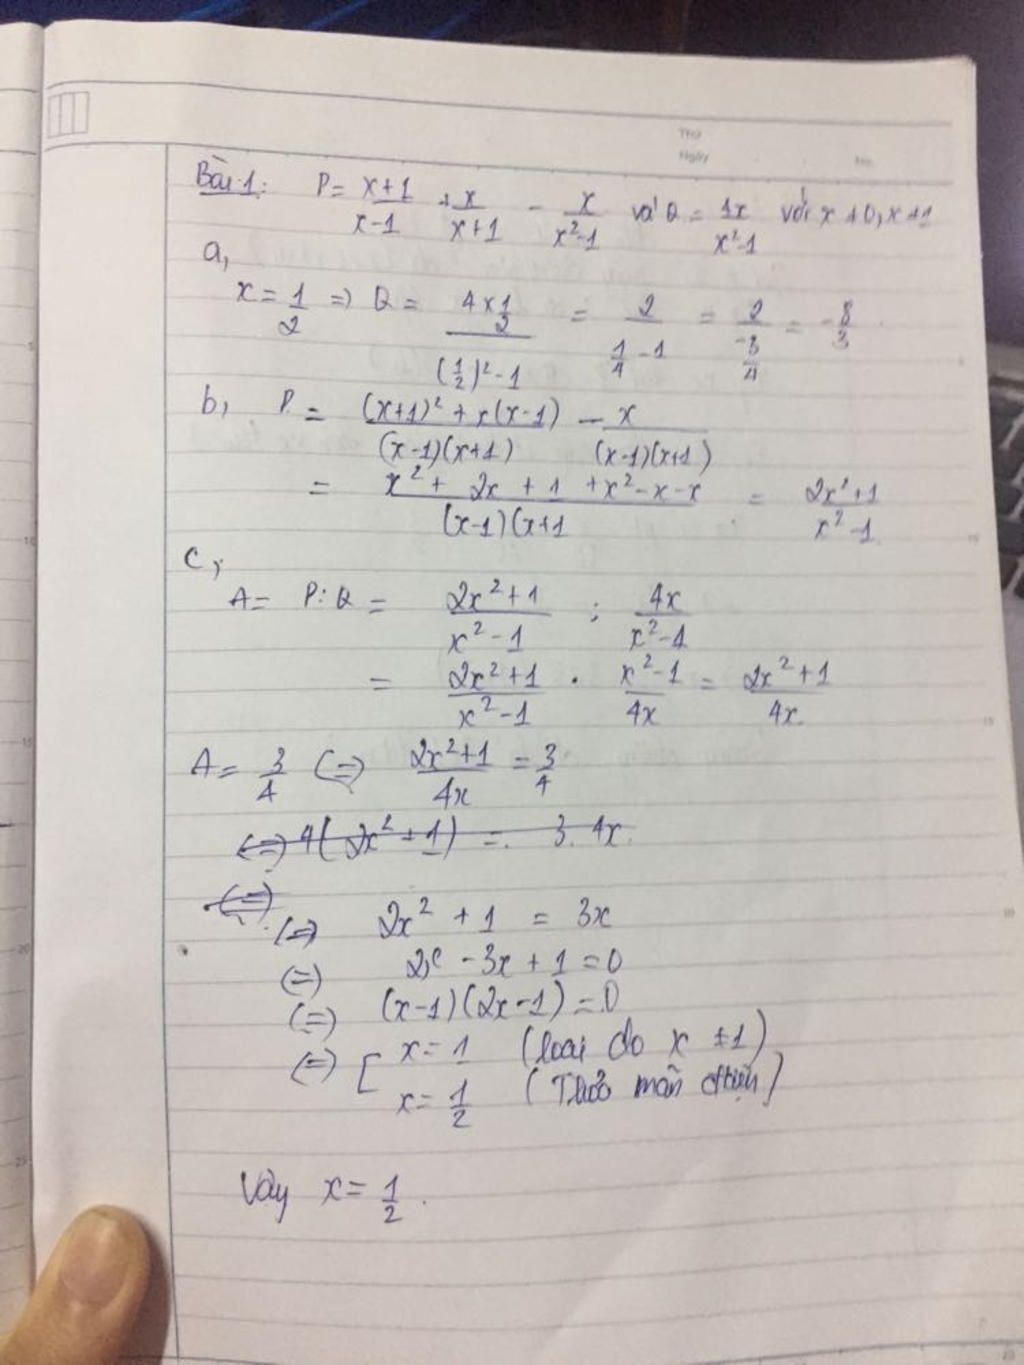 Thứ
Ngày No.
Bài 1: P = \frac{x+1}{x-1} + \frac{x}{x+1} - \frac{x}{x^2-1} và Q = \frac{4x}{x^2-1} với x ≠ 0, x ≠ 1
a,
x = \frac{1}{2} => Q = \frac{4 × \frac{1}{2}}{(\frac{1}{2})^2 - 1} = \frac{2}{\frac{1}{4} - 1} = \frac{2}{\frac{-3}{4}} = \frac{-8}{3}
b, P = \frac{(x+1)^2 + x(x-1)}{(x-1)(x+1)} - \frac{x}{(x-1)(x+1)}
= \frac{x^2 + 2x + 1 + x^2 - x - x}{(x-1)(x+1} = \frac{2x^2+1}{x^2-1}
c,
A = P : Q = \frac{2x^2+1}{x^2-1} : \frac{4x}{x^2-1}
= \frac{2x^2+1}{x^2-1} . \frac{x^2-1}{4x} = \frac{2x^2+1}{4x}
A = \frac{3}{4} (=) \frac{2x^2+1}{4x} = \frac{3}{4}
(=) 4(2x^2+1) = 3.4x
(=)
(=) 2x^2 + 1 = 3x
(=) 2x^2 - 3x + 1 = 0
(=) (x-1)(2x-1) = 0
(=) [ x = 1 (loại do x ≠ 1)
x = \frac{1}{2} (Thỏa mãn đkiện)
Vậy x = \frac{1}{2}.